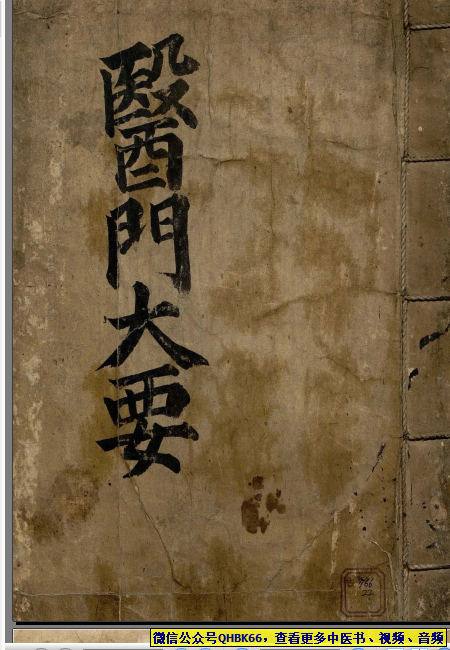 醫門大要
766
22
微信公众号QHBK66，查看更多中医书、视频、音频